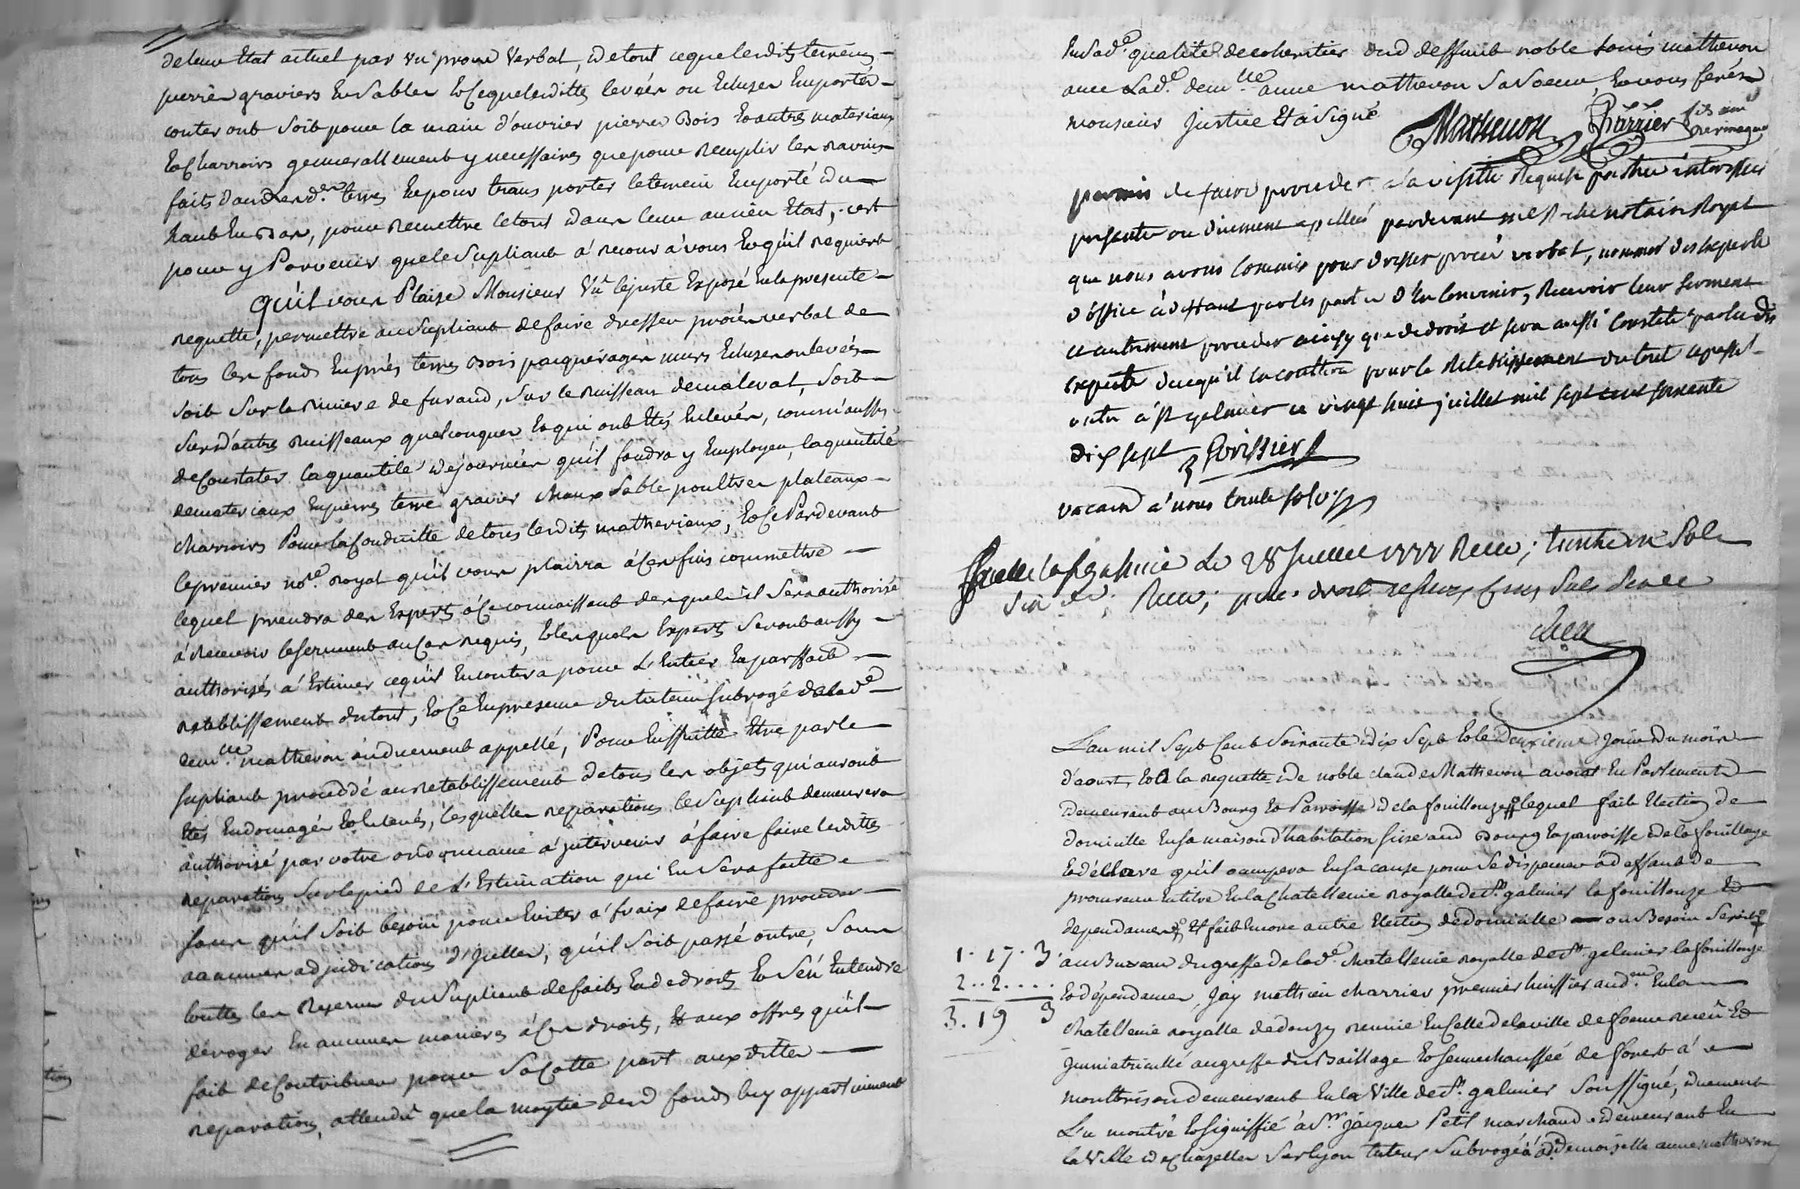 de leur Etat actuel par un proces Verbal, et de tout ce que lesdits terreins
pierres graviers et Sables Et ce que lesdittes levées ou Ecluses Emportés
couteront soit pour la main d'ouvrier pierres Bois Et autres materiaux
Et Charroirs generallement y necessaires que pour Remplir les Ravins
faits dans lesd. terres Et pour trans porter le terrein Emporté du
haut En Bas, pour Remettre le tout dans leur ancien Etat, c'est
pour y Parvenir que le Supliant à Recour à vous Et qu'il Requiert
Qu'il vous Plaise Monsieur Vu le juste Exposé En la presente
requette, permettre au Supliant de faire dresser procès verbal de
tous les fonds En prés terres Bois paquerages murs Ecluses enlevés
soit Sur la Riviere de furand, Sur le Ruisseau de maleval, soit
Sur d'autres Ruisseaux quelconques Et qui ont Etés Enlevés, comm'aussy
de Constater la quantité de journées qu'il faudra y Employer, la quantité
de materiaux En pierres terre gravier chaux Sable poultres plateaux
charroirs Pour la Conduitte de tous lesdits matheriaux, Et Ce Pardevant
le premier no.re royal qu'il vous plairra à Ces fins commettre
lequel prendra des Experts à Ce connoissant desquels il Sera authorisé
à Recevoir le serment au Cas requis, Et lesquels Experts Seront aussy
authorisés à Estimer ce qu'il En coutera pour l'Entier Et parffait
retablissement du tout, Et Ce En presence du tuteur Subrogé de lad.e
dem.lle matheron ou duement appellé, Pour Ensuitte Etre par le
supliant procedé au retablissement de tous les objets qui auront
Etés Endomagés Et Enlevés, lesquelles reparations le Supliant demeurera
authorisé par votre ordonnance à faire faire lesdittes
reparations Sur le pied de l'Estimation qui En Sera faitte
sans qu'il Soit besoin pour Eviter à fraix de faire proceder
à aucunes adjudications d'Icelles, qu'il Soit passé outre, Sous
touttes les Reserves du Supliant de faits Et de droits Et S'en Entendre
deroger En aucunes manieres à Ces droits, Et aux offres qu'il
fait de Contribuer pour Sa Cotte part aux dittes
reparations, attendu que la moytié desd fonds luy appartiennent
En Sad.e qualité de coheritier dud deffunt noble Louis matheron
avec Lad.e dem.lle anne matheron Sa Soeur, Et vous ferés
monsieur Justice Et à Signé
Matheron Charrier
permis de faire proceder a la visitte Requise parties interessées
presentes ou duement appellées pardevant me notaire Royal
que nous avons Commis pour dresser procés verbal, nommer des experts
d'office à deffaut par les parties d'En Convenir, Recevoir leur serment
et autrement proceder ainsy que de droit et sera aussi Constaté par les dits
experts de ce qu'il en couttera pour le Retablissement du tout
à St galmier ce vingt huit juillet mil sept cent soixante
dix sept
vacain à nous trente sols
Scellé Le 28 Juillet 1777 Receu, trente un Sols
Receu, pour droits reservés Cinq Sols
L'an mil Sept Cent Soixante dix Sept Et le Deuxieme jour du mois
d'aoust Et à la requette de noble claude Matheron avocat En Parlement
Demeurant au Bourg Et Parroisse de la fouillouze lequel fait Election de
domicille En Sa maison d'habitation sise aud Bourg Et parroisse de la fouillouze
Et déclare qu'il occupera En Sa cause pour Se dispencer à deffaut de
procureur En titre En la Chatellenie royalle de St galmier la fouillouze Et
dependances Et fait Encore autre Election de domicille ou Besoin Seroit
1. 17. 3 au Bureau du greffe de lad.e Chatellenie royalle de St galmier la fouillouze
2.. 2.... Et dépendances Jay mathieu charrier premier huissier aud. En la
3. 19 3 Chatellenie royalle de donzy reunie En Celle de la ville de foeurs receu Et
Immatriculé au greffe du Baillage Et Sennechaussée de forest à
montbrison demeurant En la Ville de St galmier Soussigné, duement
Lu montré Et Signiffié à Sr Jacques Petit marchand demeurant En
la Ville de Chazelles Sur lyon tuteur Subrogé à demoiselle anne matheron